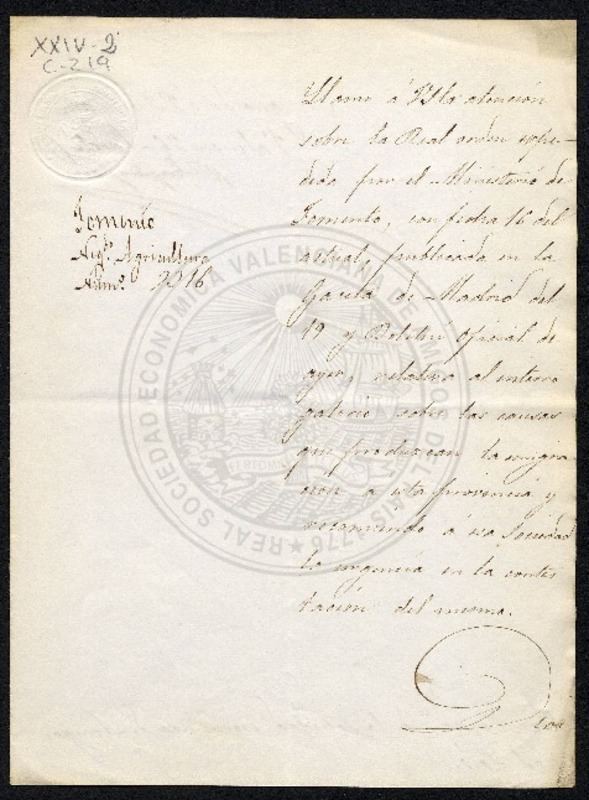 XXIV-2
C-219
Fomento
Neg.º Agricultura
Núm.º 3216
Llamo á V.S. la atencion
sobre la Real orden expe-
dida por el Ministerio de
Fomento, con fecha 16 del
actual, publicada en la
Gaceta de Madrid del
19 y Boletin oficial de
ayer, relativa al interro
gatorio sobre las causas
que produzcan la emigra
cion a esta provincia y
recomiendo á esa Sociedad
la urgencia en la contes
tacion del mismo.
REAL SOCIEDAD ECONOMICA VALENCIANA DE AMIGOS DEL PAIS 1776